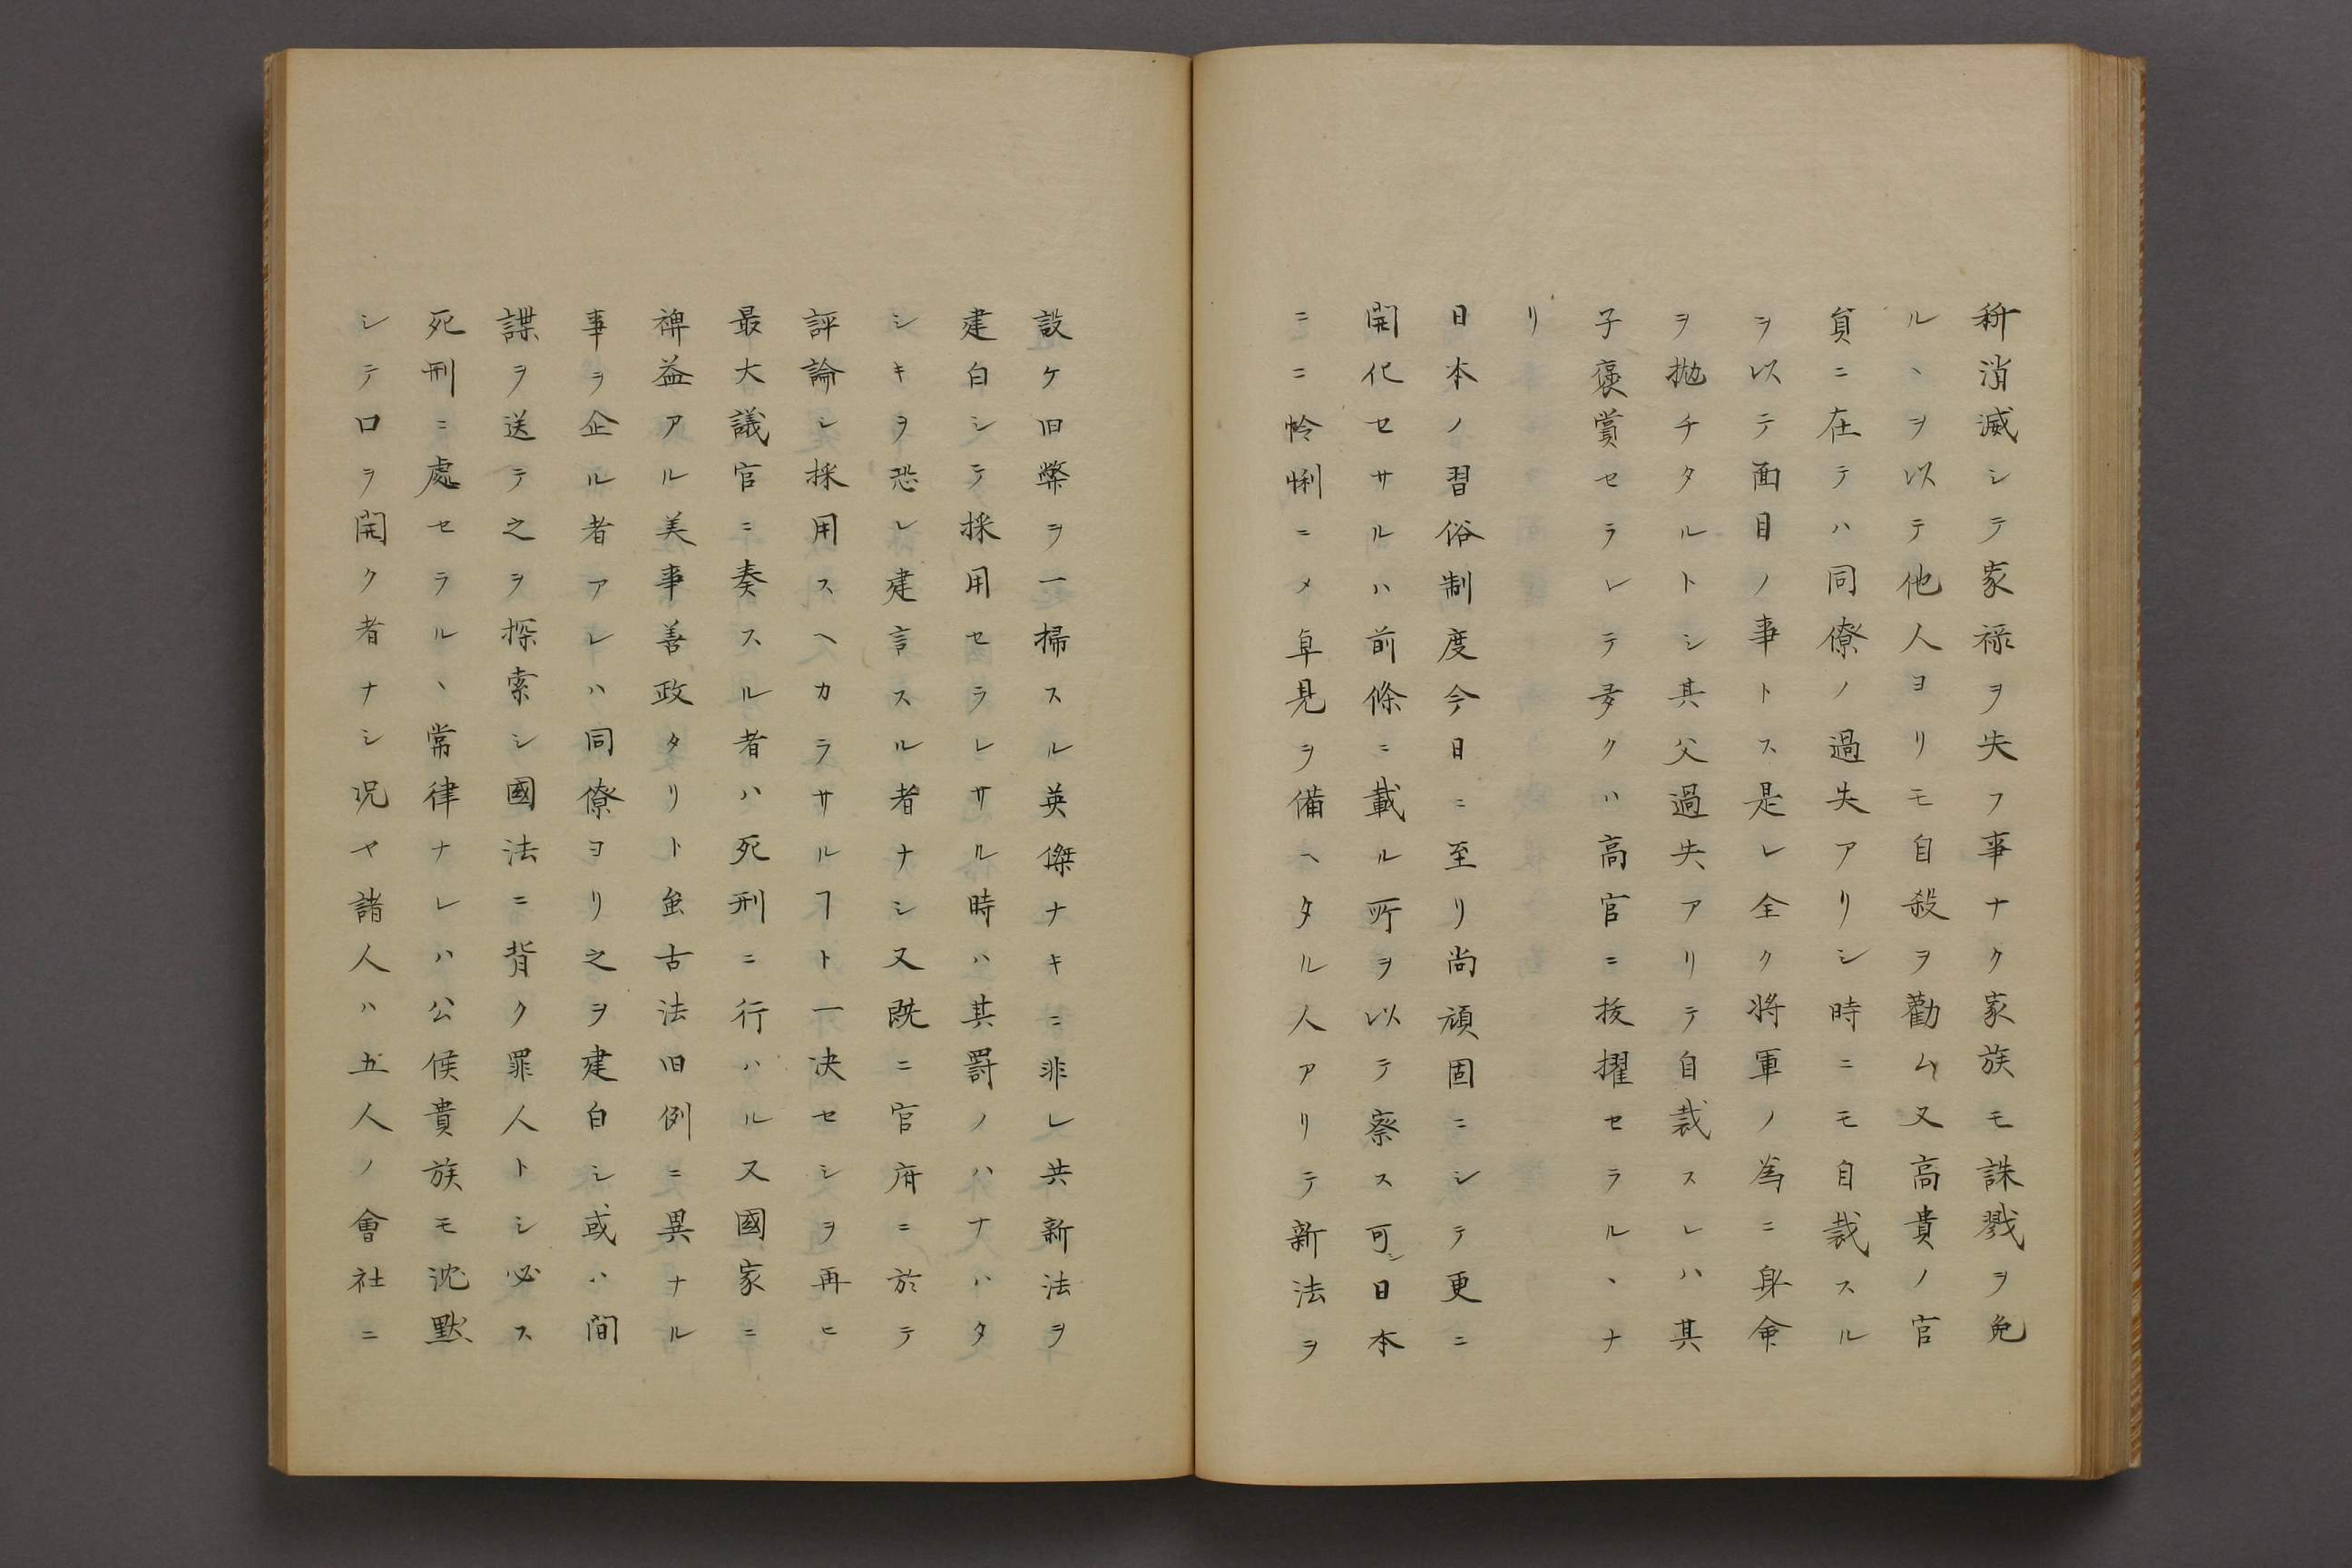 称消滅シテ家禄ヲ失フ事ナク家族モ誅戮ヲ免
ルヽヲ以テ他人ヨリモ自殺ヲ勸ム又高貴ノ官
員ニ在テハ同僚ノ過失アリシ時ニモ自裁スル
ヲ以テ面目ノ事トス是レ全ク将軍ノ為ニ身命
ヲ抛チタルトシ其父過失アリテ自裁スレハ其
子褒賞セラレテ多クハ高官ニ抜擢セラルヽナ
リ
日本ノ習俗制度今日ニ至リ尚頑固ニシテ更ニ
開化セサルハ前條ニ載ル所ヲ以テ察ス可シ日本
ニニ怜悧ニメ卓見ヲ備ヘタル人アリテ新法ヲ
設ケ旧弊ヲ一掃スル英傑ナキニ非レ共新法ヲ
建白シテ採用セラレサル時ハ其罸ノハナハタ
シキヲ恐レ建言スル者ナシ又既ニ官府ニ於テ
評論シ採用スヘカラサルヿト一决セシヲ再ヒ
最大議官ニ奏スル者ハ死刑ニ行ハル又國家ニ
裨益アル美事善政タリト虽古法旧例ニ異ナル
事ヲ企ル者アレハ同僚ヨリ之ヲ建白シ或ハ間
諜ヲ送テ之ヲ探索シ國法ニ背ク罪人トシ必ス
死刑ニ處セラルヽ常律ナレハ公侯貴族モ沈黙
シテ口ヲ開ク者ナシ况ヤ諸人ハ五人ノ會社ニ